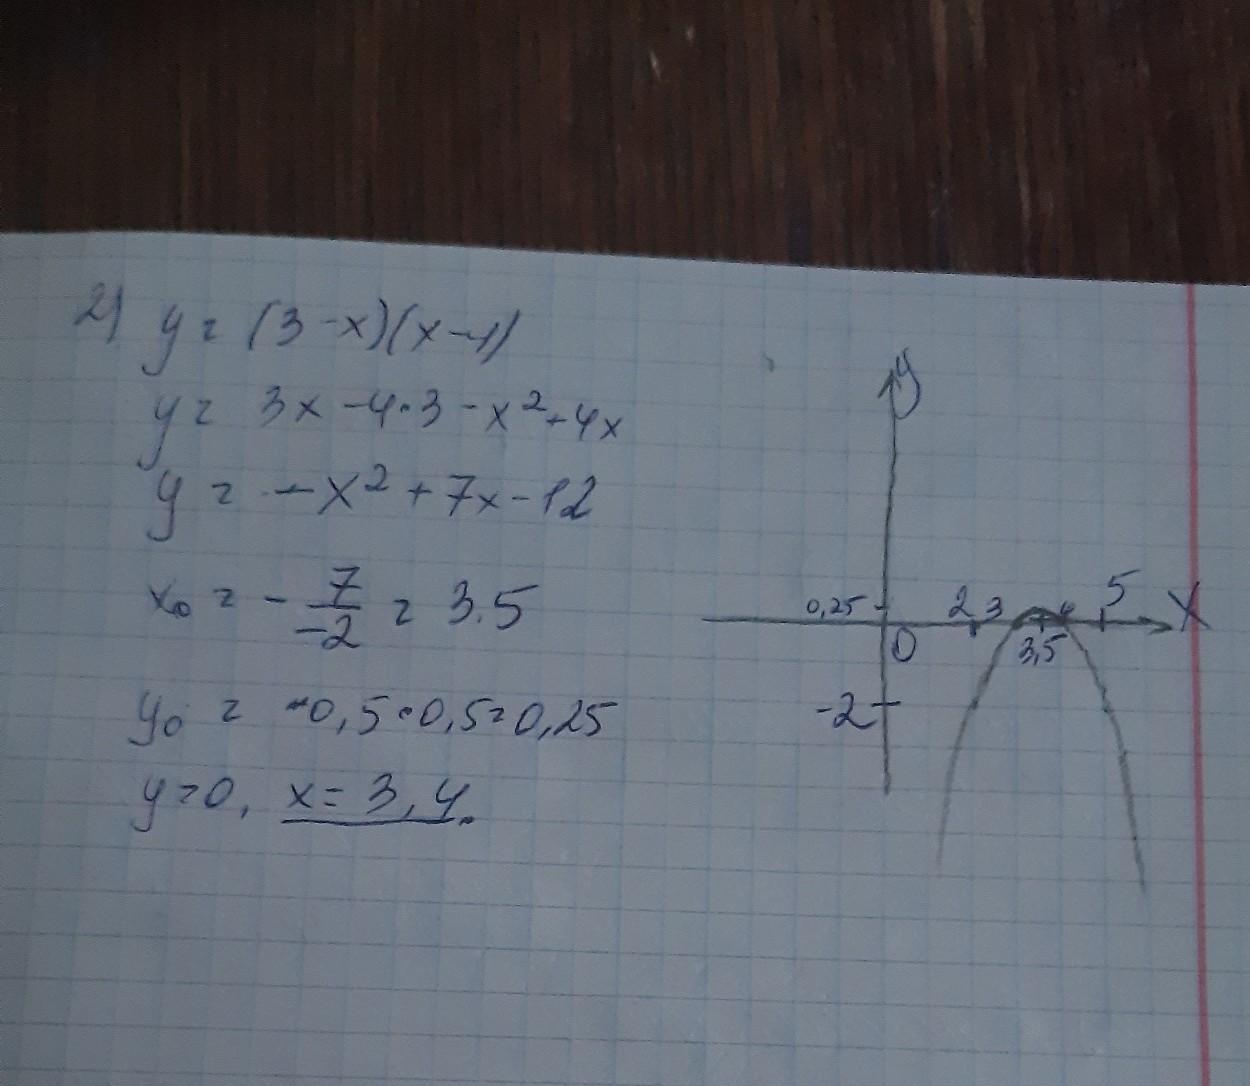 2) y = (3-x)(x-4)
y = 3x -4·3 -x²+4x
y = -x² + 7x - 12
x₀ = - 7/-2 = 3.5
y₀ = -0,5·0,5=0,25
y=0, x = 3, 4.
y
0,25
2
3
4
5
X
0
3,5
-2